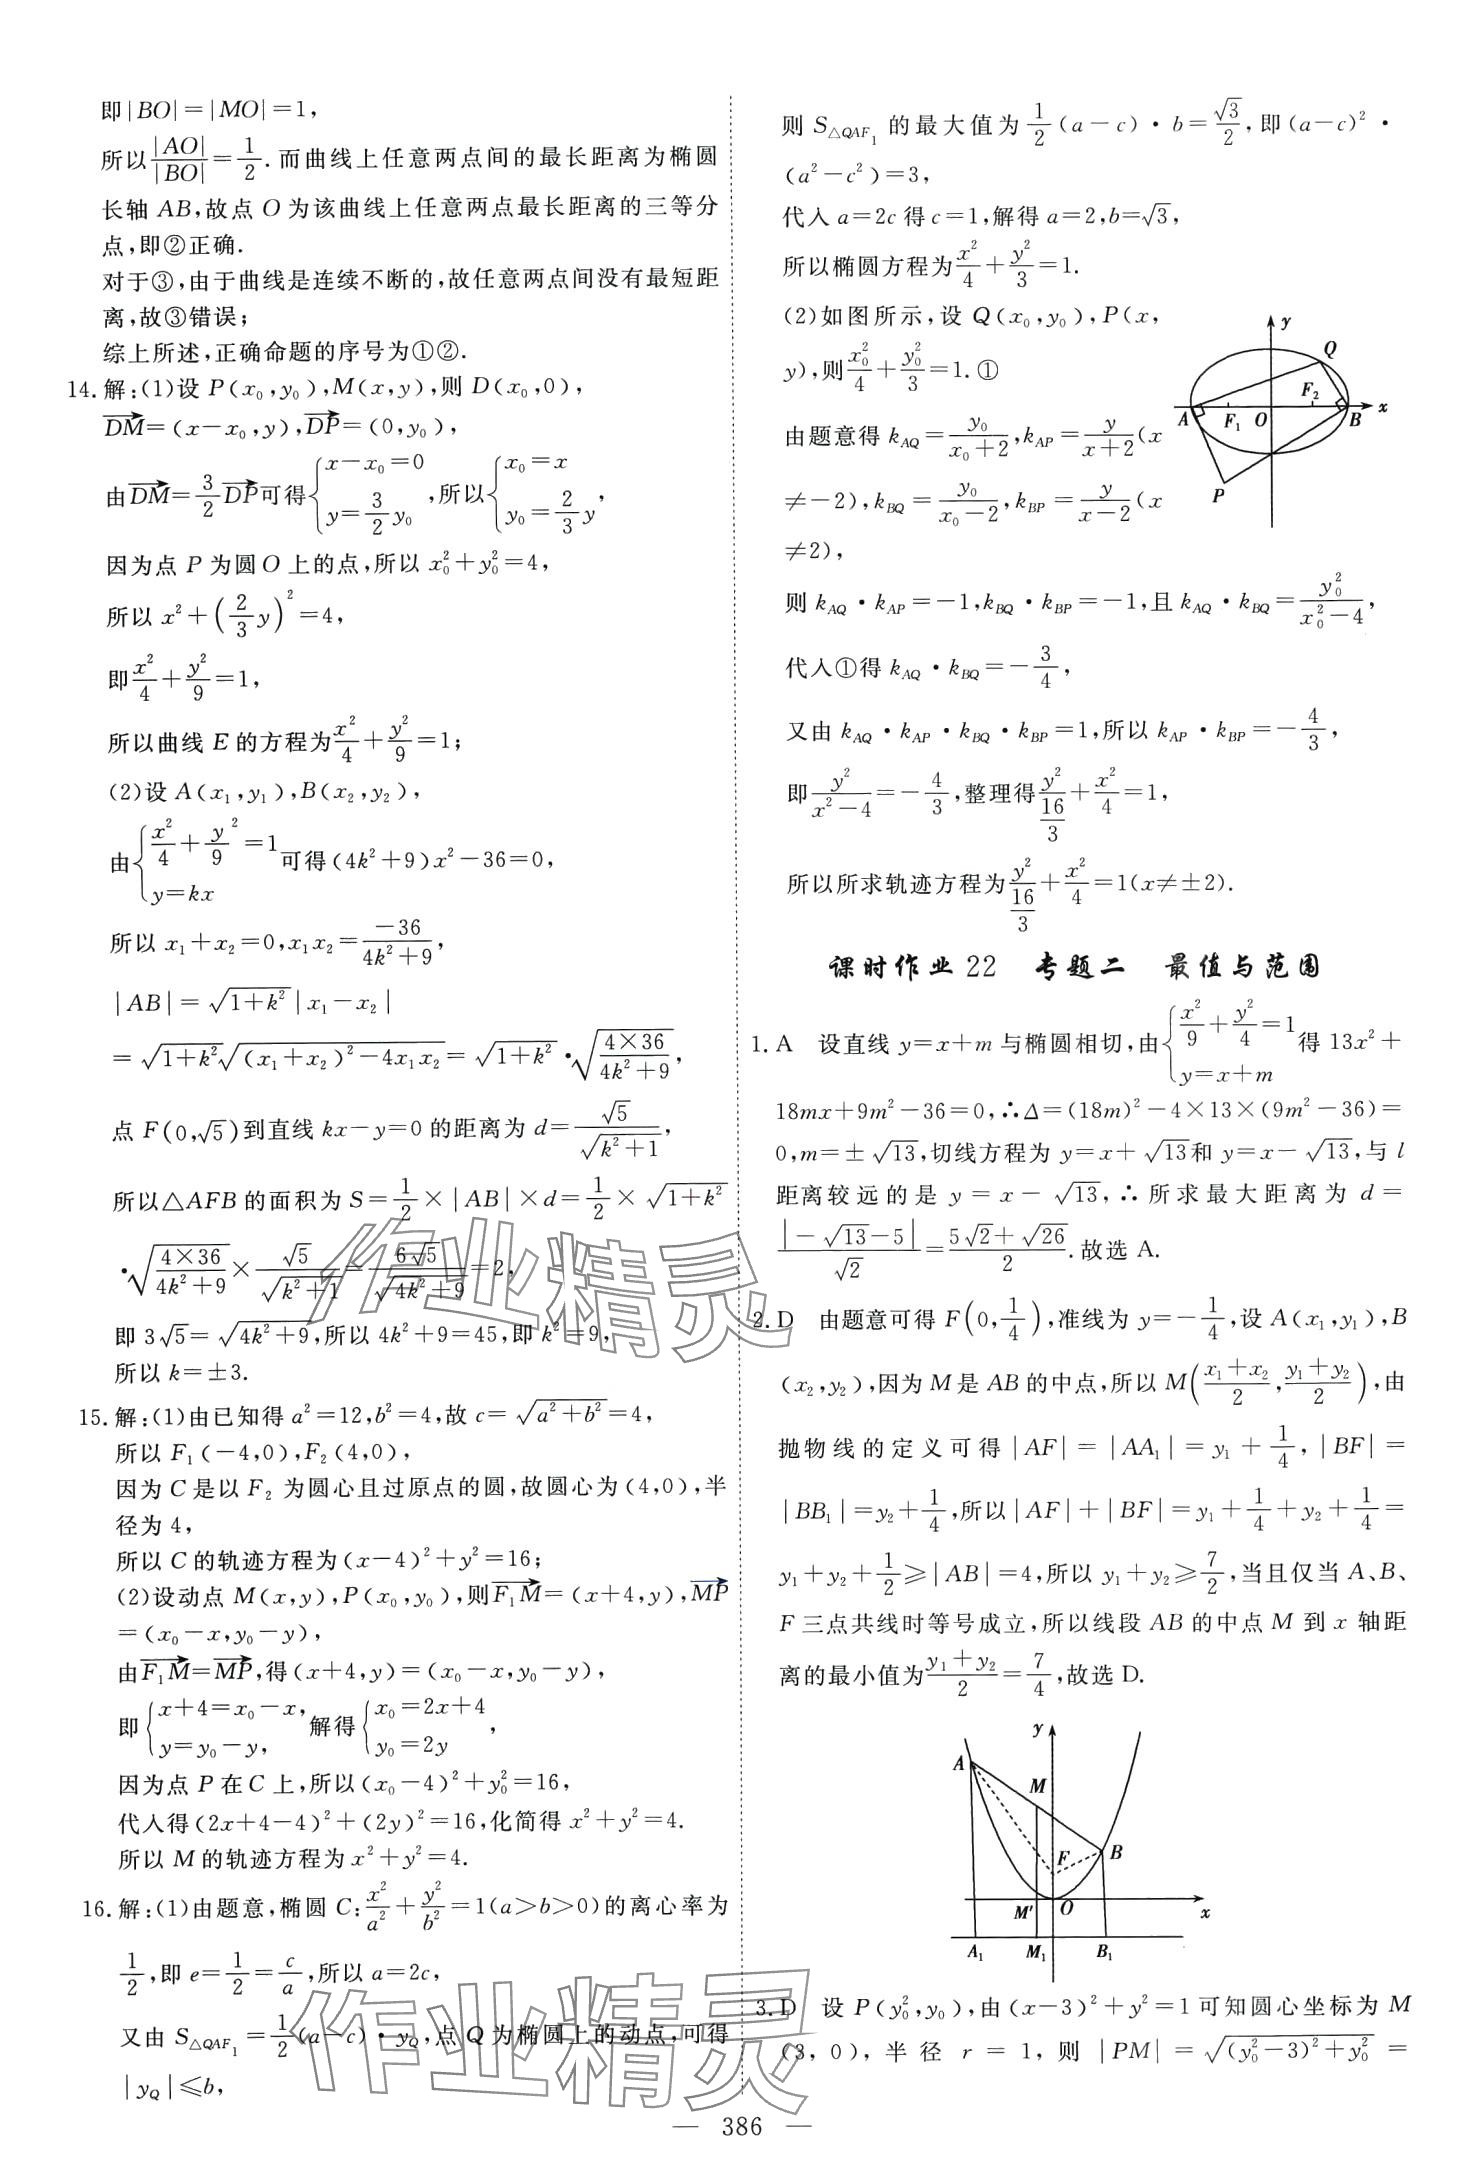 即|BO|=|MO|=1,
所以|AO|/|BO|=1/2.而曲线上任意两点间的最长距离为椭圆
长轴 AB,故点 O 为该曲线上任意两点最长距离的三等分
点,即②正确.
对于③,由于曲线是连续不断的,故任意两点间没有最短距
离,故③错误;
综上所述,正确命题的序号为①②.
14.解:(1)设 P(x₀,y₀),M(x,y),则 D(x₀,0),
$\overrightarrow{DM}$=(x-x₀,y),$\overrightarrow{DP}$=(0,y₀),
由$\overrightarrow{DM}=\frac{3}{2}\overrightarrow{DP}$可得$\begin{cases}x-x_0=0\\y=\frac{3}{2}y_0\end{cases}$,所以$\begin{cases}x_0=x\\y_0=\frac{2}{3}y\end{cases}$,
因为点 P 为圆 O 上的点,所以 $x_0^2+y_0^2=4$,
所以 $x^2+\left(\frac{2}{3}y\right)^2=4$,
即$\frac{x^2}{4}+\frac{y^2}{9}=1$,
所以曲线 E 的方程为$\frac{x^2}{4}+\frac{y^2}{9}=1$;
(2)设 A(x₁,y₁),B(x₂,y₂),
由$\begin{cases}\frac{x^2}{4}+\frac{y^2}{9}=1\\y=kx\end{cases}$可得$(4k^2+9)x^2-36=0$,
所以 $x_1+x_2=0,x_1x_2=\frac{-36}{4k^2+9}$,
$|AB|=\sqrt{1+k^2}|x_1-x_2|$
$=\sqrt{1+k^2}\sqrt{(x_1+x_2)^2-4x_1x_2}=\sqrt{1+k^2}\cdot\sqrt{\frac{4×36}{4k^2+9}}$,
点 $F(0,\sqrt{5})$到直线 kx-y=0 的距离为 $d=\frac{\sqrt{5}}{\sqrt{k^2+1}}$,
所以△AFB 的面积为 $S=\frac{1}{2}×|AB|×d=\frac{1}{2}×\sqrt{1+k^2}$
$\cdot\sqrt{\frac{4×36}{4k^2+9}}×\frac{\sqrt{5}}{\sqrt{k^2+1}}=\frac{6\sqrt{5}}{\sqrt{4k^2+9}}=2$,
即 $3\sqrt{5}=\sqrt{4k^2+9}$,所以 $4k^2+9=45$,即 $k^2=9$,
所以 k=±3.
15.解:(1)由已知得 $a^2=12,b^2=4$,故 $c=\sqrt{a^2+b^2}=4$,
所以 F₁(-4,0),F₂(4,0),
因为 C 是以 F₂ 为圆心且过原点的圆,故圆心为(4,0),半
径为 4,
所以 C 的轨迹方程为$(x-4)^2+y^2=16$;
(2)设动点 M(x,y),P(x₀,y₀),则$\overrightarrow{F_1M}$=(x+4,y),$\overrightarrow{MP}$
=(x₀-x,y₀-y),
由$\overrightarrow{F_1M}=\overrightarrow{MP}$,得(x+4,y)=(x₀-x,y₀-y),
即$\begin{cases}x+4=x_0-x,\\y=y_0-y,\end{cases}$解得$\begin{cases}x_0=2x+4\\y_0=2y\end{cases}$,
因为点 P 在 C 上,所以$(x_0-4)^2+y_0^2=16$,
代入得$(2x+4-4)^2+(2y)^2=16$,化简得 $x^2+y^2=4$.
所以 M 的轨迹方程为 $x^2+y^2=4$.
16.解:(1)由题意,椭圆 C:$\frac{x^2}{a^2}+\frac{y^2}{b^2}=1(a>b>0)$的离心率为
$\frac{1}{2}$,即 $e=\frac{1}{2}=\frac{c}{a}$,所以 a=2c,
又由 $S_{△QAF_1}=\frac{1}{2}(a-c)\cdot y_Q$,点 Q 为椭圆上的动点,可得
$|y_Q|≤b$,
则 $S_{△QAF_1}$ 的最大值为$\frac{1}{2}(a-c)\cdot b=\frac{\sqrt{3}}{2}$,即$(a-c)^2\cdot$
$(a^2-c^2)=3$,
代入 a=2c 得 c=1,解得 a=2,b=$\sqrt{3}$,
所以椭圆方程为$\frac{x^2}{4}+\frac{y^2}{3}=1$.
(2)如图所示,设 Q(x₀,y₀),P(x,
y),则$\frac{x_0^2}{4}+\frac{y_0^2}{3}=1$.①
由题意得 $k_{AQ}=\frac{y_0}{x_0+2},k_{AP}=\frac{y}{x+2}$(x
≠-2),$k_{BQ}=\frac{y_0}{x_0-2},k_{BP}=\frac{y}{x-2}$(x
≠2),
y
Q
F₂
A
F₁
O
B
x
P
则 $k_{AQ}\cdot k_{AP}=-1,k_{BQ}\cdot k_{BP}=-1$,且 $k_{AQ}\cdot k_{BQ}=\frac{y_0^2}{x_0^2-4}$,
代入①得 $k_{AQ}\cdot k_{BQ}=-\frac{3}{4}$,
又由 $k_{AQ}\cdot k_{AP}\cdot k_{BQ}\cdot k_{BP}=1$,所以 $k_{AP}\cdot k_{BP}=-\frac{4}{3}$,
即$\frac{y^2}{x^2-4}=-\frac{4}{3}$,整理得$\frac{y^2}{\frac{16}{3}}+\frac{x^2}{4}=1$,
所以所求轨迹方程为$\frac{y^2}{\frac{16}{3}}+\frac{x^2}{4}=1(x≠±2)$.
课时作业 22 专题二 最值与范围
1.A 设直线 y=x+m 与椭圆相切,由$\begin{cases}\frac{x^2}{9}+\frac{y^2}{4}=1\\y=x+m\end{cases}$得 $13x^2+$
$18mx+9m^2-36=0$,∴$Δ=(18m)^2-4×13×(9m^2-36)=$
0,m=±$\sqrt{13}$,切线方程为 y=x+$\sqrt{13}$和 y=x-$\sqrt{13}$,与 l
距离较远的是 y=x-$\sqrt{13}$,∴所求最大距离为 d=
$\frac{|-\sqrt{13}-5|}{\sqrt{2}}=\frac{5\sqrt{2}+\sqrt{26}}{2}$.故选 A.
2.D 由题意可得 $F\left(0,\frac{1}{4}\right)$,准线为 $y=-\frac{1}{4}$,设 A(x₁,y₁),B
(x₂,y₂),因为 M 是 AB 的中点,所以 $M\left(\frac{x_1+x_2}{2},\frac{y_1+y_2}{2}\right)$,由
抛物线的定义可得 $|AF|=|AA_1|=y_1+\frac{1}{4},|BF|=$
$|BB_1|=y_2+\frac{1}{4}$,所以$|AF|+|BF|=y_1+\frac{1}{4}+y_2+\frac{1}{4}=$
$y_1+y_2+\frac{1}{2}≥|AB|=4$,所以 $y_1+y_2≥\frac{7}{2}$,当且仅当 A、B、
F 三点共线时等号成立,所以线段 AB 的中点 M 到 x 轴距
离的最小值为$\frac{y_1+y_2}{2}=\frac{7}{4}$,故选 D.
y
A
M
B
F
M′
O
x
A₁
M₁
B₁
3.D 设 $P(y_0^2,y_0)$,由$(x-3)^2+y^2=1$ 可知圆心坐标为 M
(3,0),半径 r=1,则 $|PM|=\sqrt{(y_0^2-3)^2+y_0^2}=$
— 386 —
作业精灵
作业精灵